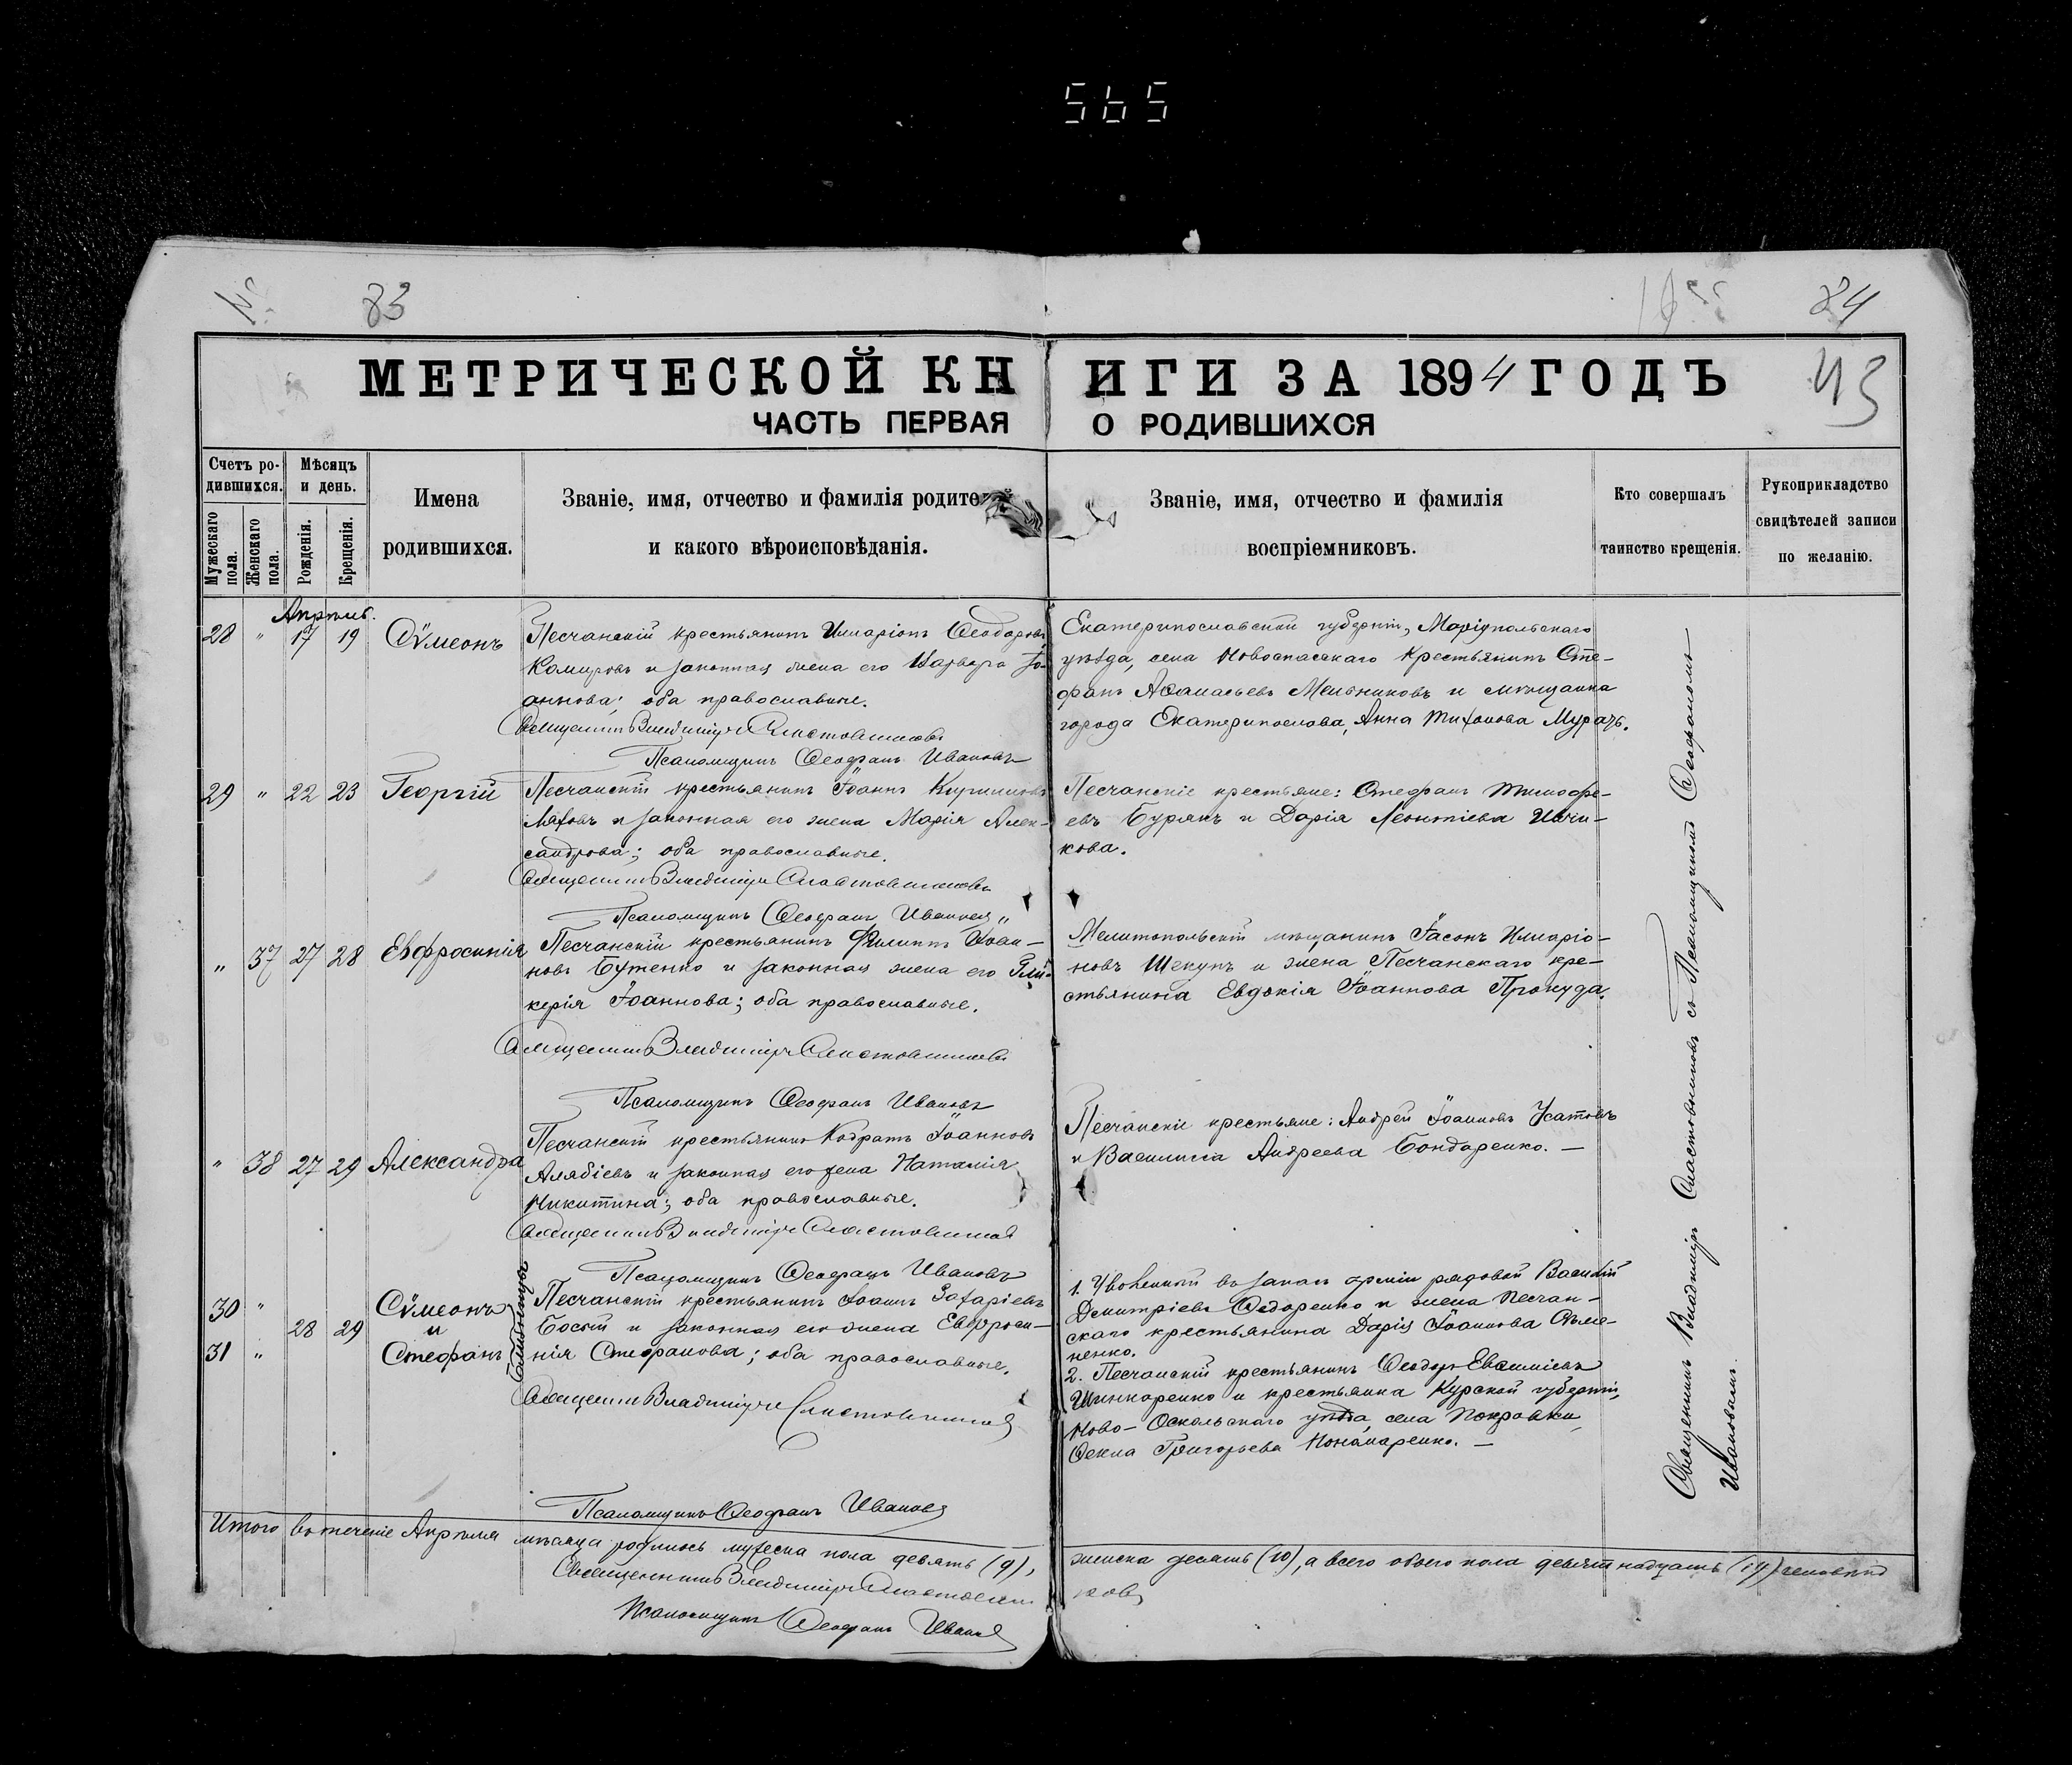 565
83
84
МЕТРИЧЕСКОЙ КНИГИ ЗА 1894 ГОДЪ
43
ЧАСТЬ ПЕРВАЯ О РОДИВШИХСЯ
Счетъ ро-
дившихся.
Мужескаго
пола.
Женскаго
пола.
Мѣсяцъ
и день.
Рожденія.
Крещенія.
Имена
родившихся.
Званіе, имя, отчество и фамилія родителей
и какого вѣроисповѣданія.
Званіе, имя, отчество и фамилія
воспріемниковъ.
Кто совершалъ
таинство крещенія.
Рукоприкладство
свидѣтелей записи
по желанію.
Апрѣль.
28 " 17 19 Сѵмеонъ
Песчанскій крестьянинъ Иларіонъ Ѳеодоровъ
и законная жена его Варвара Іо-
аннова; оба православные.
Священникъ Владиміръ Сластовниковъ
Псаломщикъ Ѳеофанъ Ивановъ
Екатеринославской губерніи, Маріупольскаго
уѣзда, села Новоспасскаго крестьянинъ Сте-
фанъ Аѳанасьевъ Мельниковъ и мѣщанка
города Екатеринослава, Анна Тихонова Мурачъ.
29 " 22 23 Георгій
Песчанскій крестьянинъ Іоаннъ Кирилловъ
Ляховъ и законная его жена Марія Алек-
сандрова; оба православные.
Священникъ Владиміръ Сластовниковъ
Псаломщикъ Ѳеофанъ Ивановъ
Песчанскіе крестьяне: Стефанъ Тимофе-
евъ Бурякъ и Дарія Леонтіева
кова.
" 37 27 28 Евфросинія
Песчанскій крестьянинъ Филиппъ Іоан-
новъ Бутенко и законная жена его Гли-
керія Іоаннова; оба православные.
Священникъ Владиміръ Сластовниковъ
Псаломщикъ Ѳеофанъ Ивановъ
Мелитопольскій мѣщанинъ Іасонъ Иларіо-
новъ Шекунъ и жена Песчанскаго кре-
стьянина Евдокія Іоаннова Прокуда.
" 38 27 29 Александра
Песчанскій крестьянинъ Кодратъ Іоанновъ
Алябіевъ и законная его жена Наталія
Никитина; оба православные.
Священникъ Владиміръ Сластовниковъ
Псаломщикъ Ѳеофанъ Ивановъ
Песчанскіе крестьяне: Андрей Іоанновъ Усатовъ
и Василисса Андреева Бондаренко. —
30 " Сѵмеонъ
28 29 и
31 " Стефанъ
близнецы
Песчанскій крестьянинъ Іоаннъ Захаріевъ
Босый и законная его жена Евфроси-
нія Стефанова; оба православные.
Священникъ Владиміръ Сластовниковъ
Псаломщикъ Ѳеофанъ Ивановъ
1. Уволенный въ запасъ арміи рядовой Василій
Димитріевъ Ѳедоренко и жена Песчан-
скаго крестьянина Дарія Іоаннова
ненко.
2. Песчанскій крестьянинъ Ѳеодоръ
Шинкаренко и крестьянка Курской губерніи,
Ново-Оскольскаго уѣзда, села Покровки,
Ѳекла Григорьева Понамаренко. —
Священникъ Владиміръ Сластовниковъ съ Псаломщикомъ Ѳеофаномъ
Ивановымъ.
Итого въ теченіе Апрѣля мѣсяца родилось мужеска пола девять (9), женска десять (10), а всего обоего пола девятнадцать (19) человѣкъ
Священникъ Владиміръ
Псаломщикъ Ѳеофанъ Ивановъ